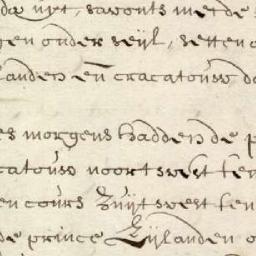 uijt, savonts met de
gen onder seijl, setten
landen en cracatouw
es morgens hadden de p
catouw noortwest ten
en cours Zuijtwest ten
de prince Eijlanden o